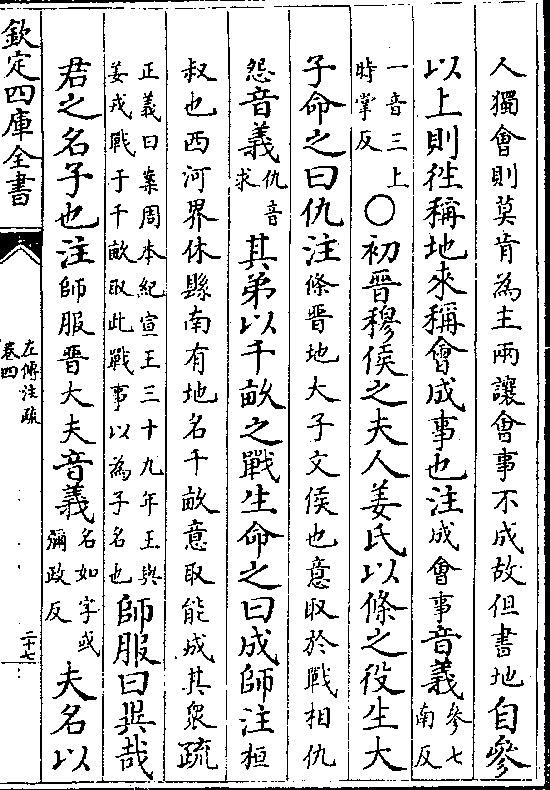 人獨會則莫肯為主兩讓會事不成故但書地自參
以上則徃稱地來稱會成事也注成會事音義參七南反
一音三上時掌反○初晉穆侯之夫人姜氏以條之役生大
子命之曰仇注條晉地大子文侯也意取於戰相仇
怨音義仇音求其弟以千畝之戰生命之曰成師注桓
叔也西河界休縣南有地名千畝意取能成其衆疏
正義曰案周本紀宣王三十九年王與姜戎戰于千畝取此戰事以為子名也師服曰異哉
君之名子也注師服晉大夫音義名如字或彌政反夫名以
欽定四庫全書
左傳注疏
卷四
二十七